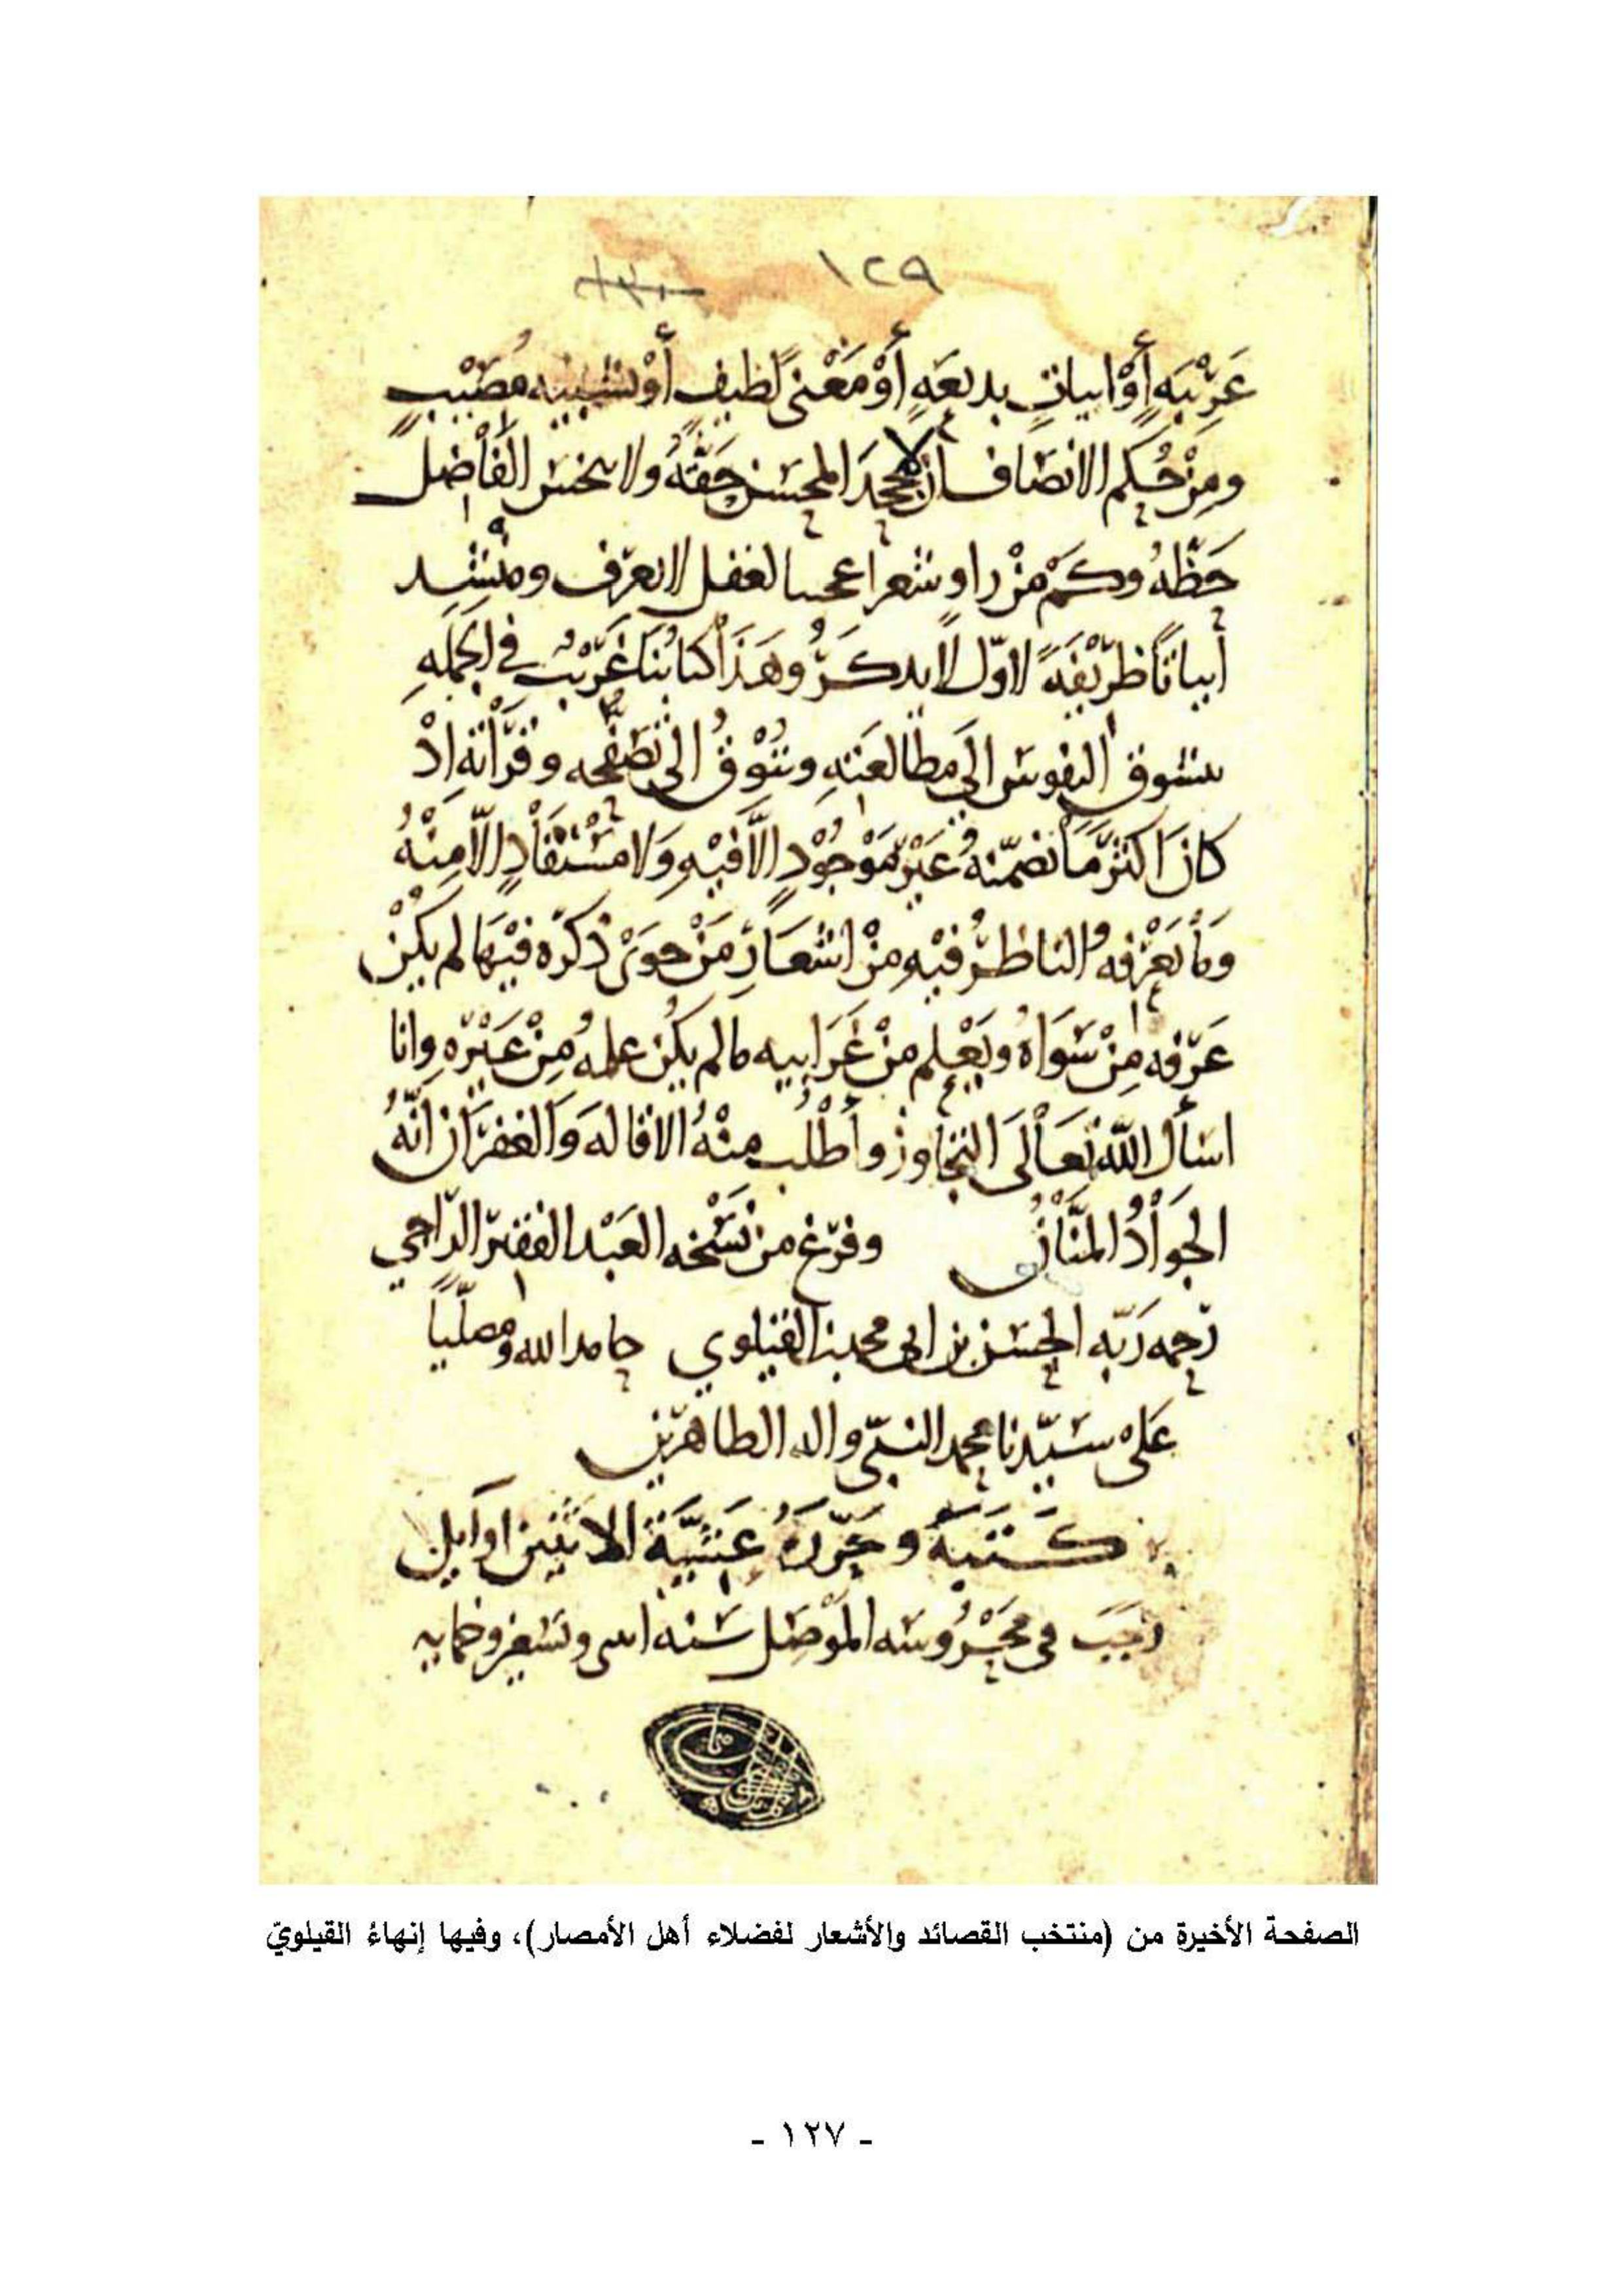 ١٢٩
١٣٠
غريبه أو ابيات بديعة أو معنى لطيف أو تشبيه مصيب
ومن حكم الانصاف أن لا يجحد المحسن حقه ولا يبخس الفاضل
حظه وكم من راو شعرا عجيبا لغفل لا يعرف ومنشد
أبياتا ظريفة لاول لا يذكر وهذا كتابنا غريب في الجمله
يشوق النفوس إلى مطالعته وتتوق الى تصفحه وقرأته اذ
كان اكثر ما تضمنه غير موجود الا فيه ولا مستفاد الا منه
وما يعرفه الناظر فيه من اشعار من حوى ذكره فيها لم يكن
عرفه من سواه ويعلم من غرايبه ما لم يكن علمه من غيره وانا
اسأل الله تعالى التجاوز وأطلب منه الاقاله والغفران انه
الجواد المنان وفرغ من نسخه العبد الفقير الراجي
رحمه ربه الحسن بن ابى محمد القيلوي حامدا لله ومصليا
على سيدنا محمد النبي واله الطاهرين
كتبه وحرره عشية الاثنين اوايل
رجب في محروسه الموصل سنه اسى وتسعين وخمايه
الصفحة الأخيرة من (منتخب القصائد والأشعار لفضلاء أهل الأمصار)، وفيها إنهاءُ القيلويّ
- ١٢٧ -